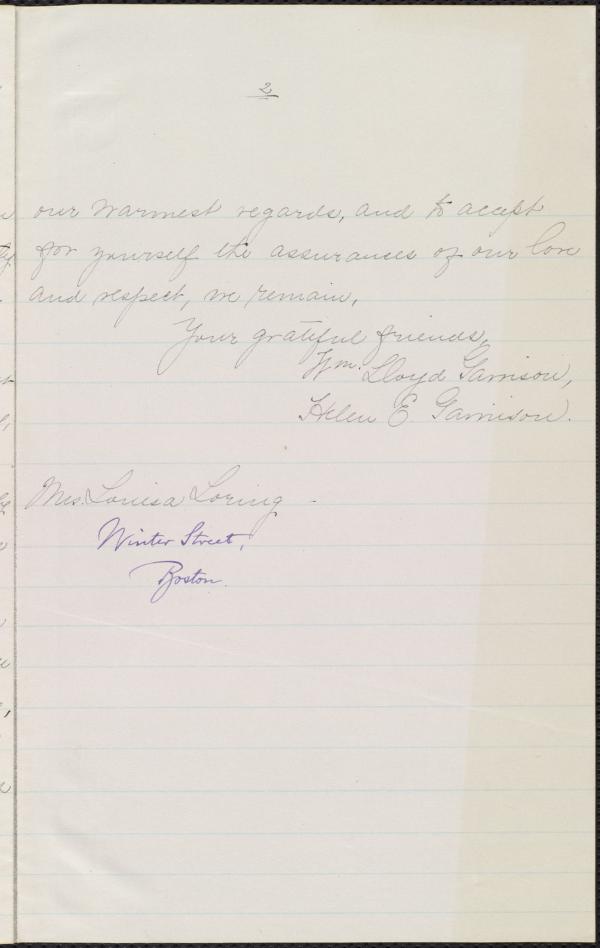 2
our warmest regards, and to accept
for yourself the assurances of our love
and respect, we remain,
Your grateful friends,
Wm. Lloyd Garrison,
Helen E. Garrison.
Mrs. Louisa Loring
Winter Street,
Boston.